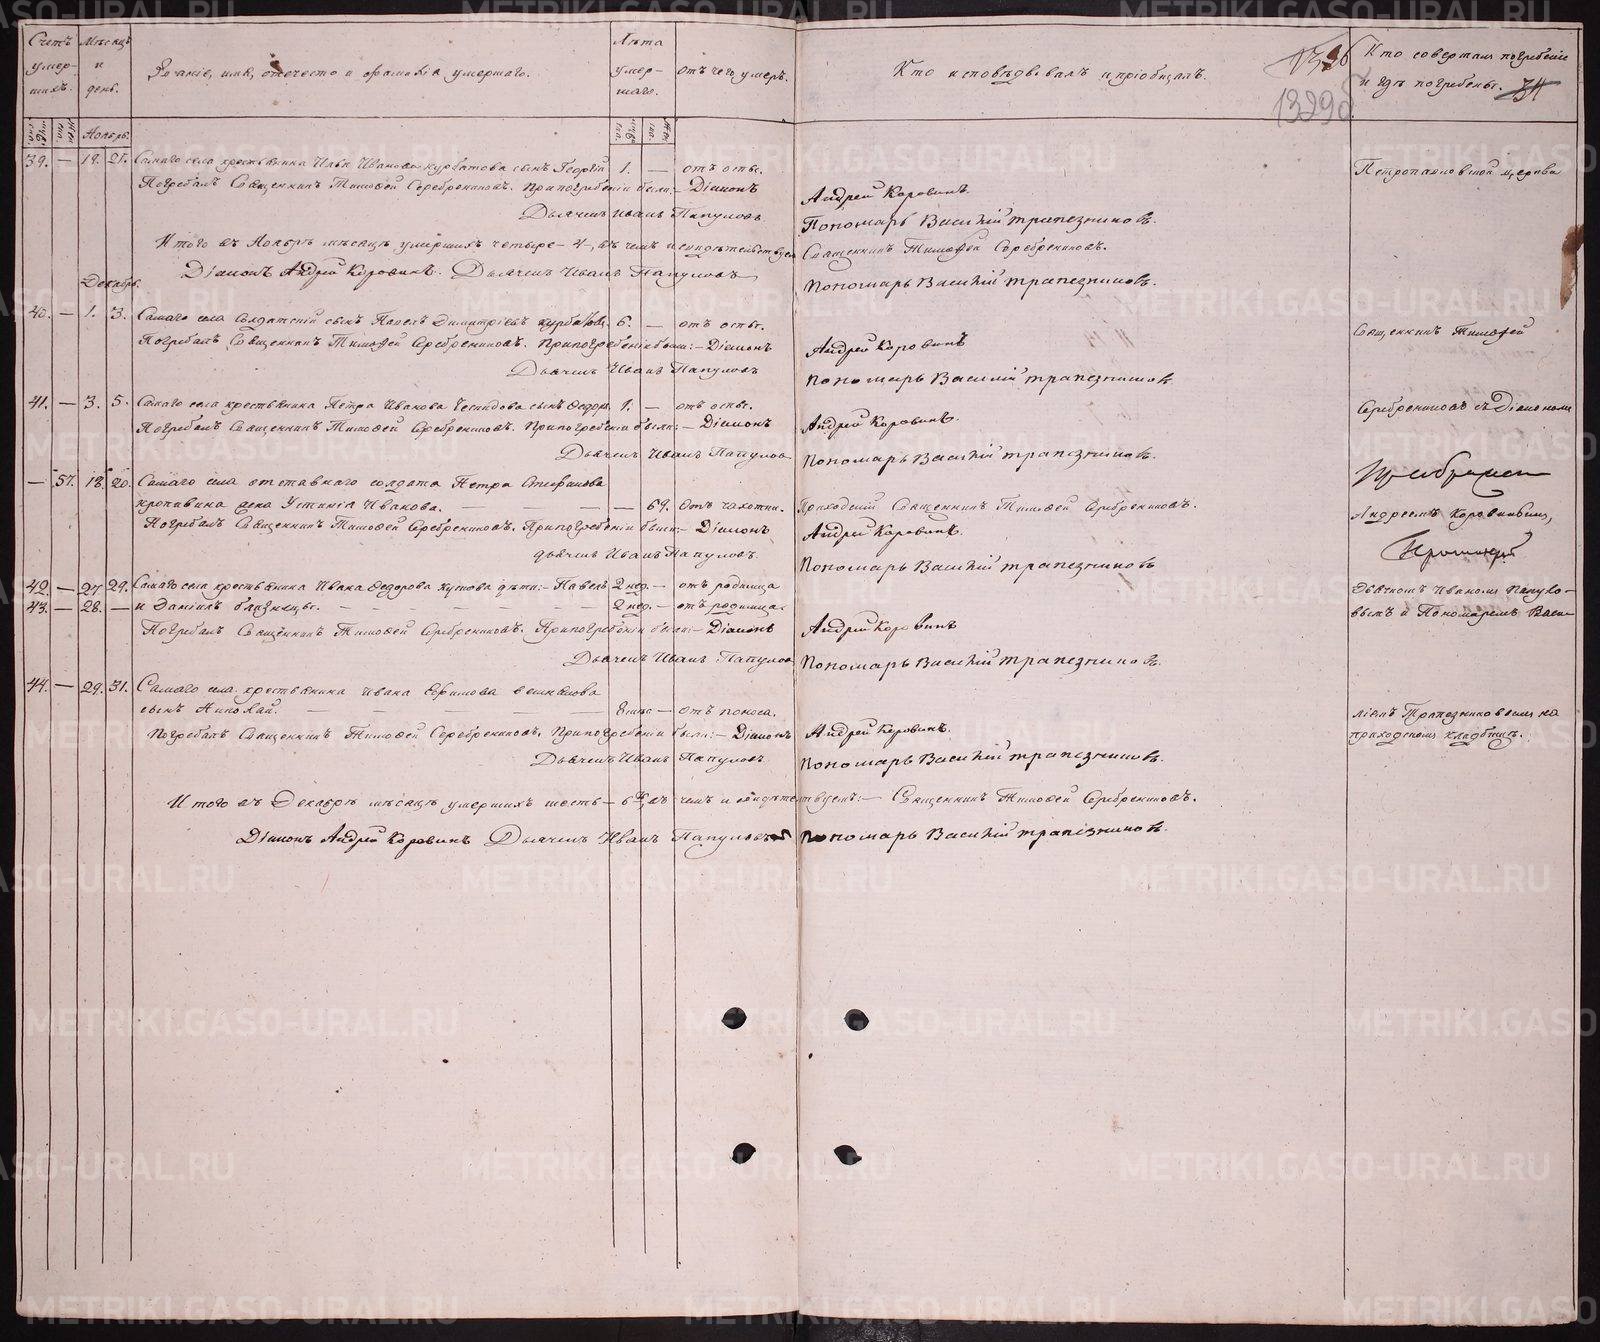 Счетъ умер- шихъ.
Мѣсяцъ и день.
Званіе, имя, отечество и фамилія умершаго.
Лѣта умер- шаго.
отъ чего умеръ.
Кто исповѣдывалъ и пріобщалъ.
Кто совершалъ погребеніе и гдѣ погребены.
1329об
34
Ноябрь.
39. — 19. 21. Самаго села крестьянина Ильи Иванова Курбатова сынъ Георгій 1. — отъ оспы.
Погребалъ Священникъ Тимофей Серебренниковъ. При погребеніи были:— Діаконъ Андрей Коровинъ
Дьячекъ Иванъ Папуловъ Пономарь Василій Трапезниковъ.
Итого въ Ноябрѣ мѣсяцѣ умершихъ четыре — 4, въ чемъ и свидѣтельствуем Священникъ Тимофей Серебренниковъ.
Діаконъ Андрей Коровинъ. Дьячекъ Иванъ Папуловъ Пономарь Василій Трапезниковъ.
Декабрь.
40. — 1. 3. Самаго села солдатскій сынъ Павелъ Димитріевъ Курбатовъ 6. — отъ оспы.
Погребалъ Священникъ Тимофей Серебренниковъ. При погребеніи были:— Діаконъ Андрей Коровинъ
Дьячекъ Иванъ Папуловъ Пономарь Василій Трапезниковъ
41. — 3. 5. Самаго села крестьянина Петра Иванова сынъ Федоръ 1. — отъ оспы.
Погребалъ Священникъ Тимофей Серебренниковъ. При погребеніи были:— Діаконъ Андрей Коровинъ.
Дьячекъ Иванъ Папулов Пономарь Василій Трапезниковъ.
— 57. 18. 20. Самаго села отставнаго солдата Петра Стефанова
Кропавина жена Устинія Иванова. — — — — 69. Отъ чахотки. Приходскій Священникъ Тимофей Серебренниковъ.
Погребалъ Священникъ Тимофей Серебренниковъ. При погребеніи были:— Діаконъ Андрей Коровинъ.
Дьячекъ Иванъ Папуловъ. Пономарь Василій Трапезниковъ
42. — 27. 29. Самаго села крестьянина Ивана Федорова Кутова дѣти:— Павелъ 2 нед. — отъ родимца
43. — 28. — и Даніилъ близнецы. — — — — 2 нед. — отъ родимца.
Погребалъ Священникъ Тимофей Серебренниковъ. При погребеніи были:— Діаконъ Андрей Коровинъ
Дьячекъ Иванъ Папулов Пономарь Василій Трапезниковъ.
44. — 29. 31. Самаго села крестьянина Ивана Ефимова
сынъ Николай. — — — — 8 мѣс — отъ поноса.
Погребалъ Священникъ Тимофей Серебренниковъ. При погребеніи были:— Діаконъ Андрей Коровинъ.
Дьячекъ Иванъ Папуловъ Пономарь Василій Трапезниковъ.
Итого въ Декабрѣ мѣсяцѣ умершихъ шесть — 6, въ чемъ и свидѣтельствуемъ:— Священникъ Тимофей Серебренниковъ.
Діаконъ Андрей Коровинъ Дьячекъ Иванъ Папуловъ Пономарь Василій Трапезниковъ.
Петропавловской церкви
Священникъ Тимофей
Серебренниковъ съ Діакономъ
Андреемъ Коровинымъ,
Дьячкомъ Иваномъ Папуло-
вымъ и Пономаремъ Васи-
ліемъ Трапезниковымъ на
приходскомъ кладбищѣ.
METRIKI.GASO-URAL.RU